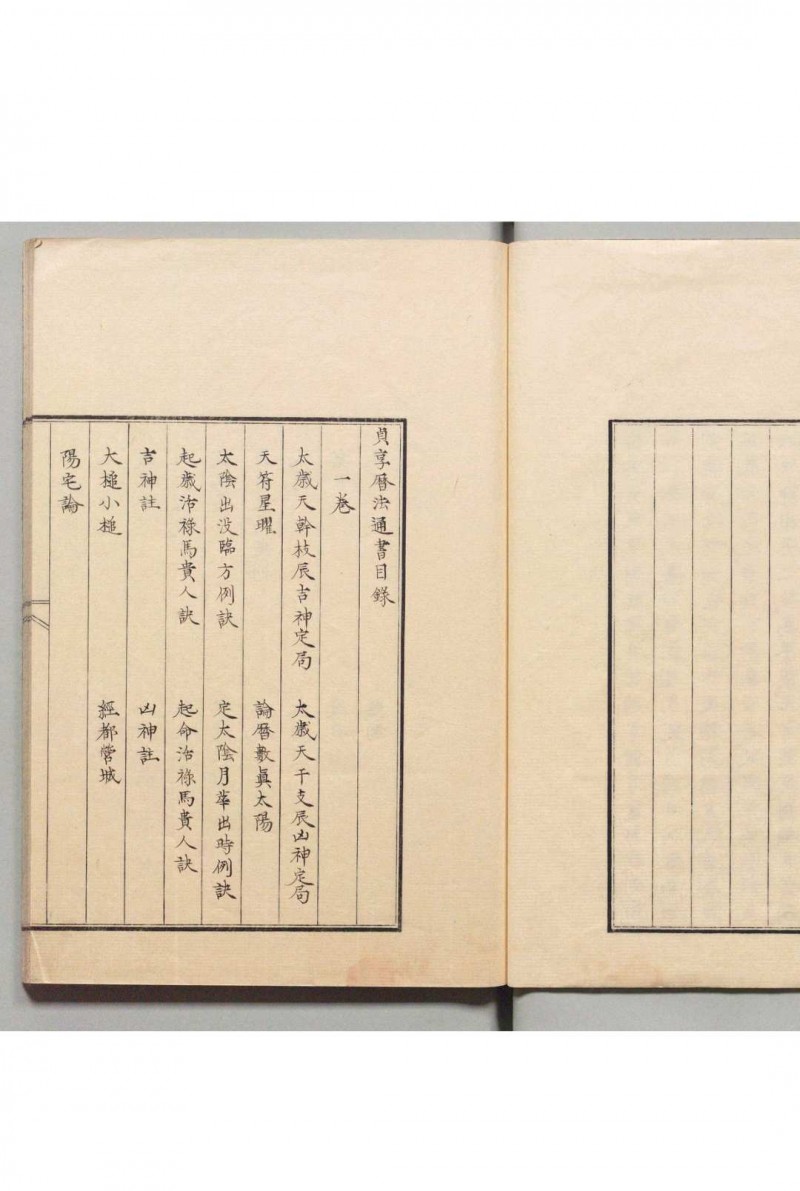 貞享暦法通書目録
一巻
太歳天幹枝辰吉神定局　太歳天干支辰凶神定局
天符星曜　論暦數真太陽
太陰出没臨方例訣　定太陰月華出時例訣
起歳治祿馬貴人訣　起命治祿馬貴人訣
吉神註　凶神註
大槌小槌　經都營城
陽宅論